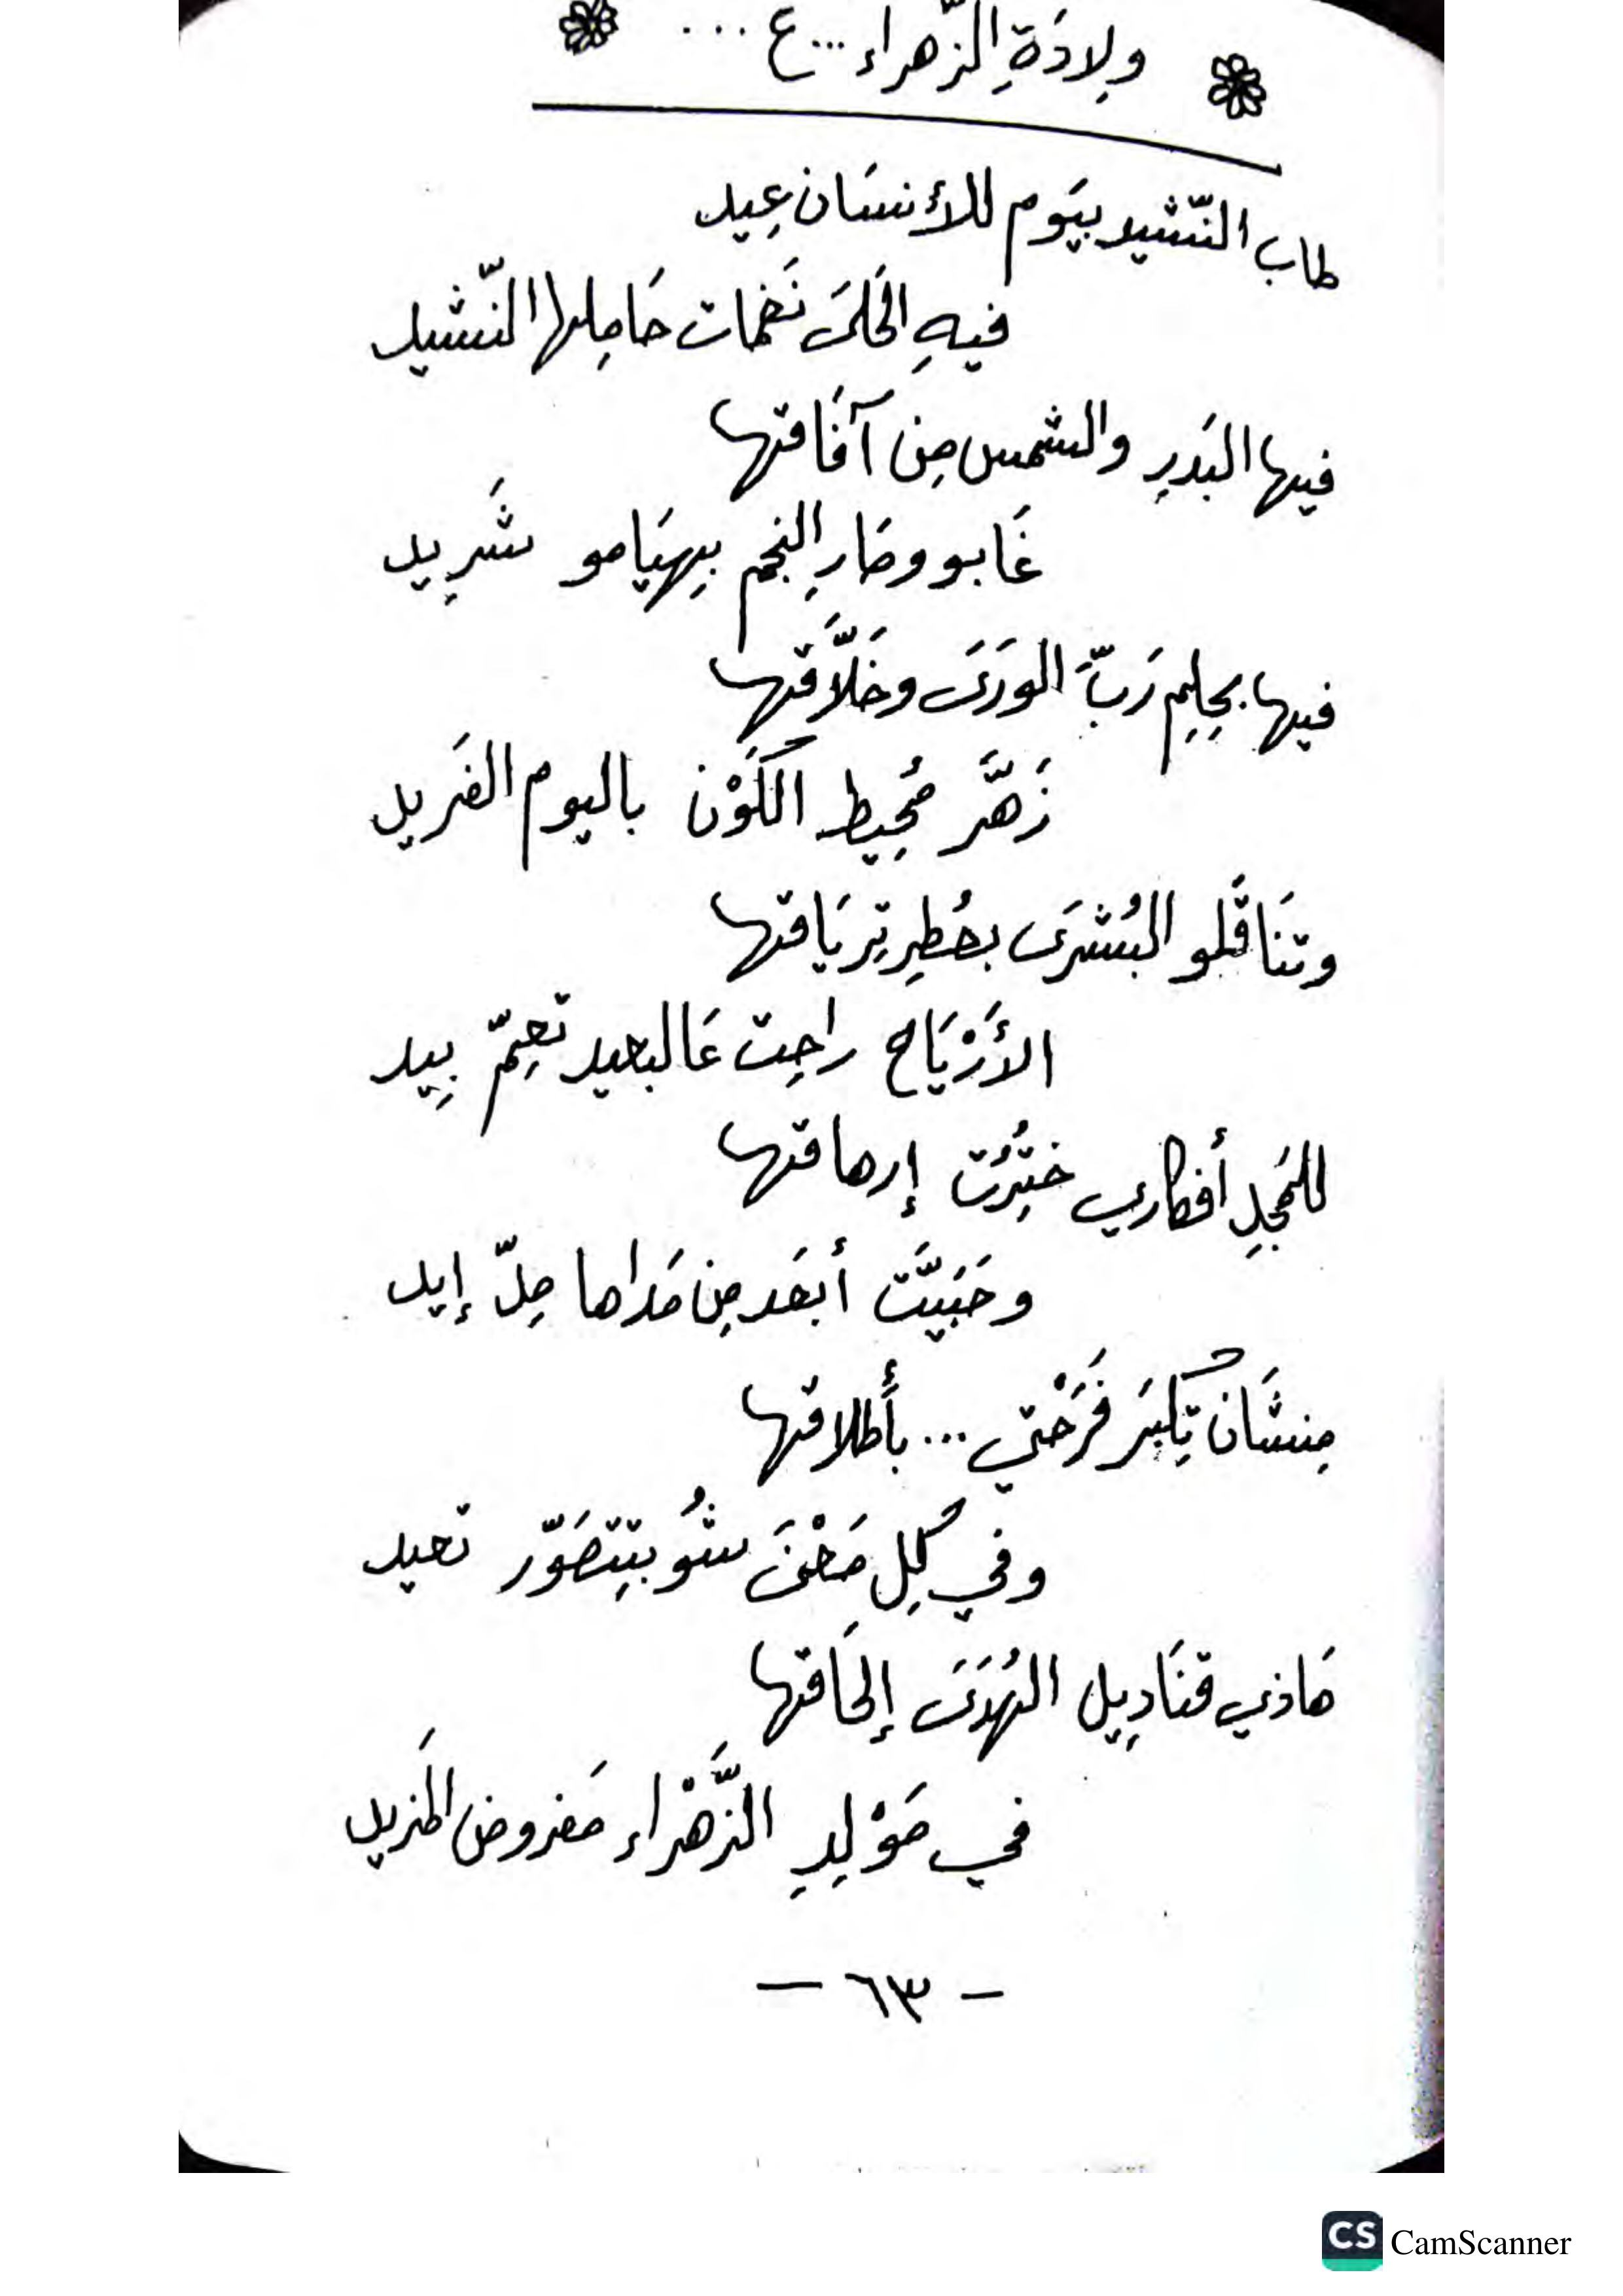 ولِادَةِ الزّهراء...ع ...
طاب النّشيد بيَوم للأنسَان عِيد
فيهِ الحَلىَ نَغمات حَامِلها النّشيد
فيها البَدرِ والشمس مِن آفَاقها
غَابو وصَارِ النجم بِهيَامو شَرِيد
فيها بحِلِم رَبَّ الورَىَ وخَلاَّقها
زَهَّر مُحِيط الكَوْن باليوم الفَريد
وتنَاقَلو البُشرَى بعُطِر تِريَاقها
الأَرْيَاح راحِت عَالبعيد تعِمّ بِيد
للمَجدِ أفكاري إرهاقها
وحَبَيَّت أبعَد مِن مَداها مِلّ إيد
مِنشَان تِكبَر فَرَحْتي ... بأَطلاقها
وفي كِل مَعْنىَ شُو بتِتصَوّر تعيد
هَاذي قنَادِيل الهُدَىَ إلحَاقها
في مَوْلِدِ الزَّهْراء مَفروض المَزيد
- ٦٣ -
CS CamScanner